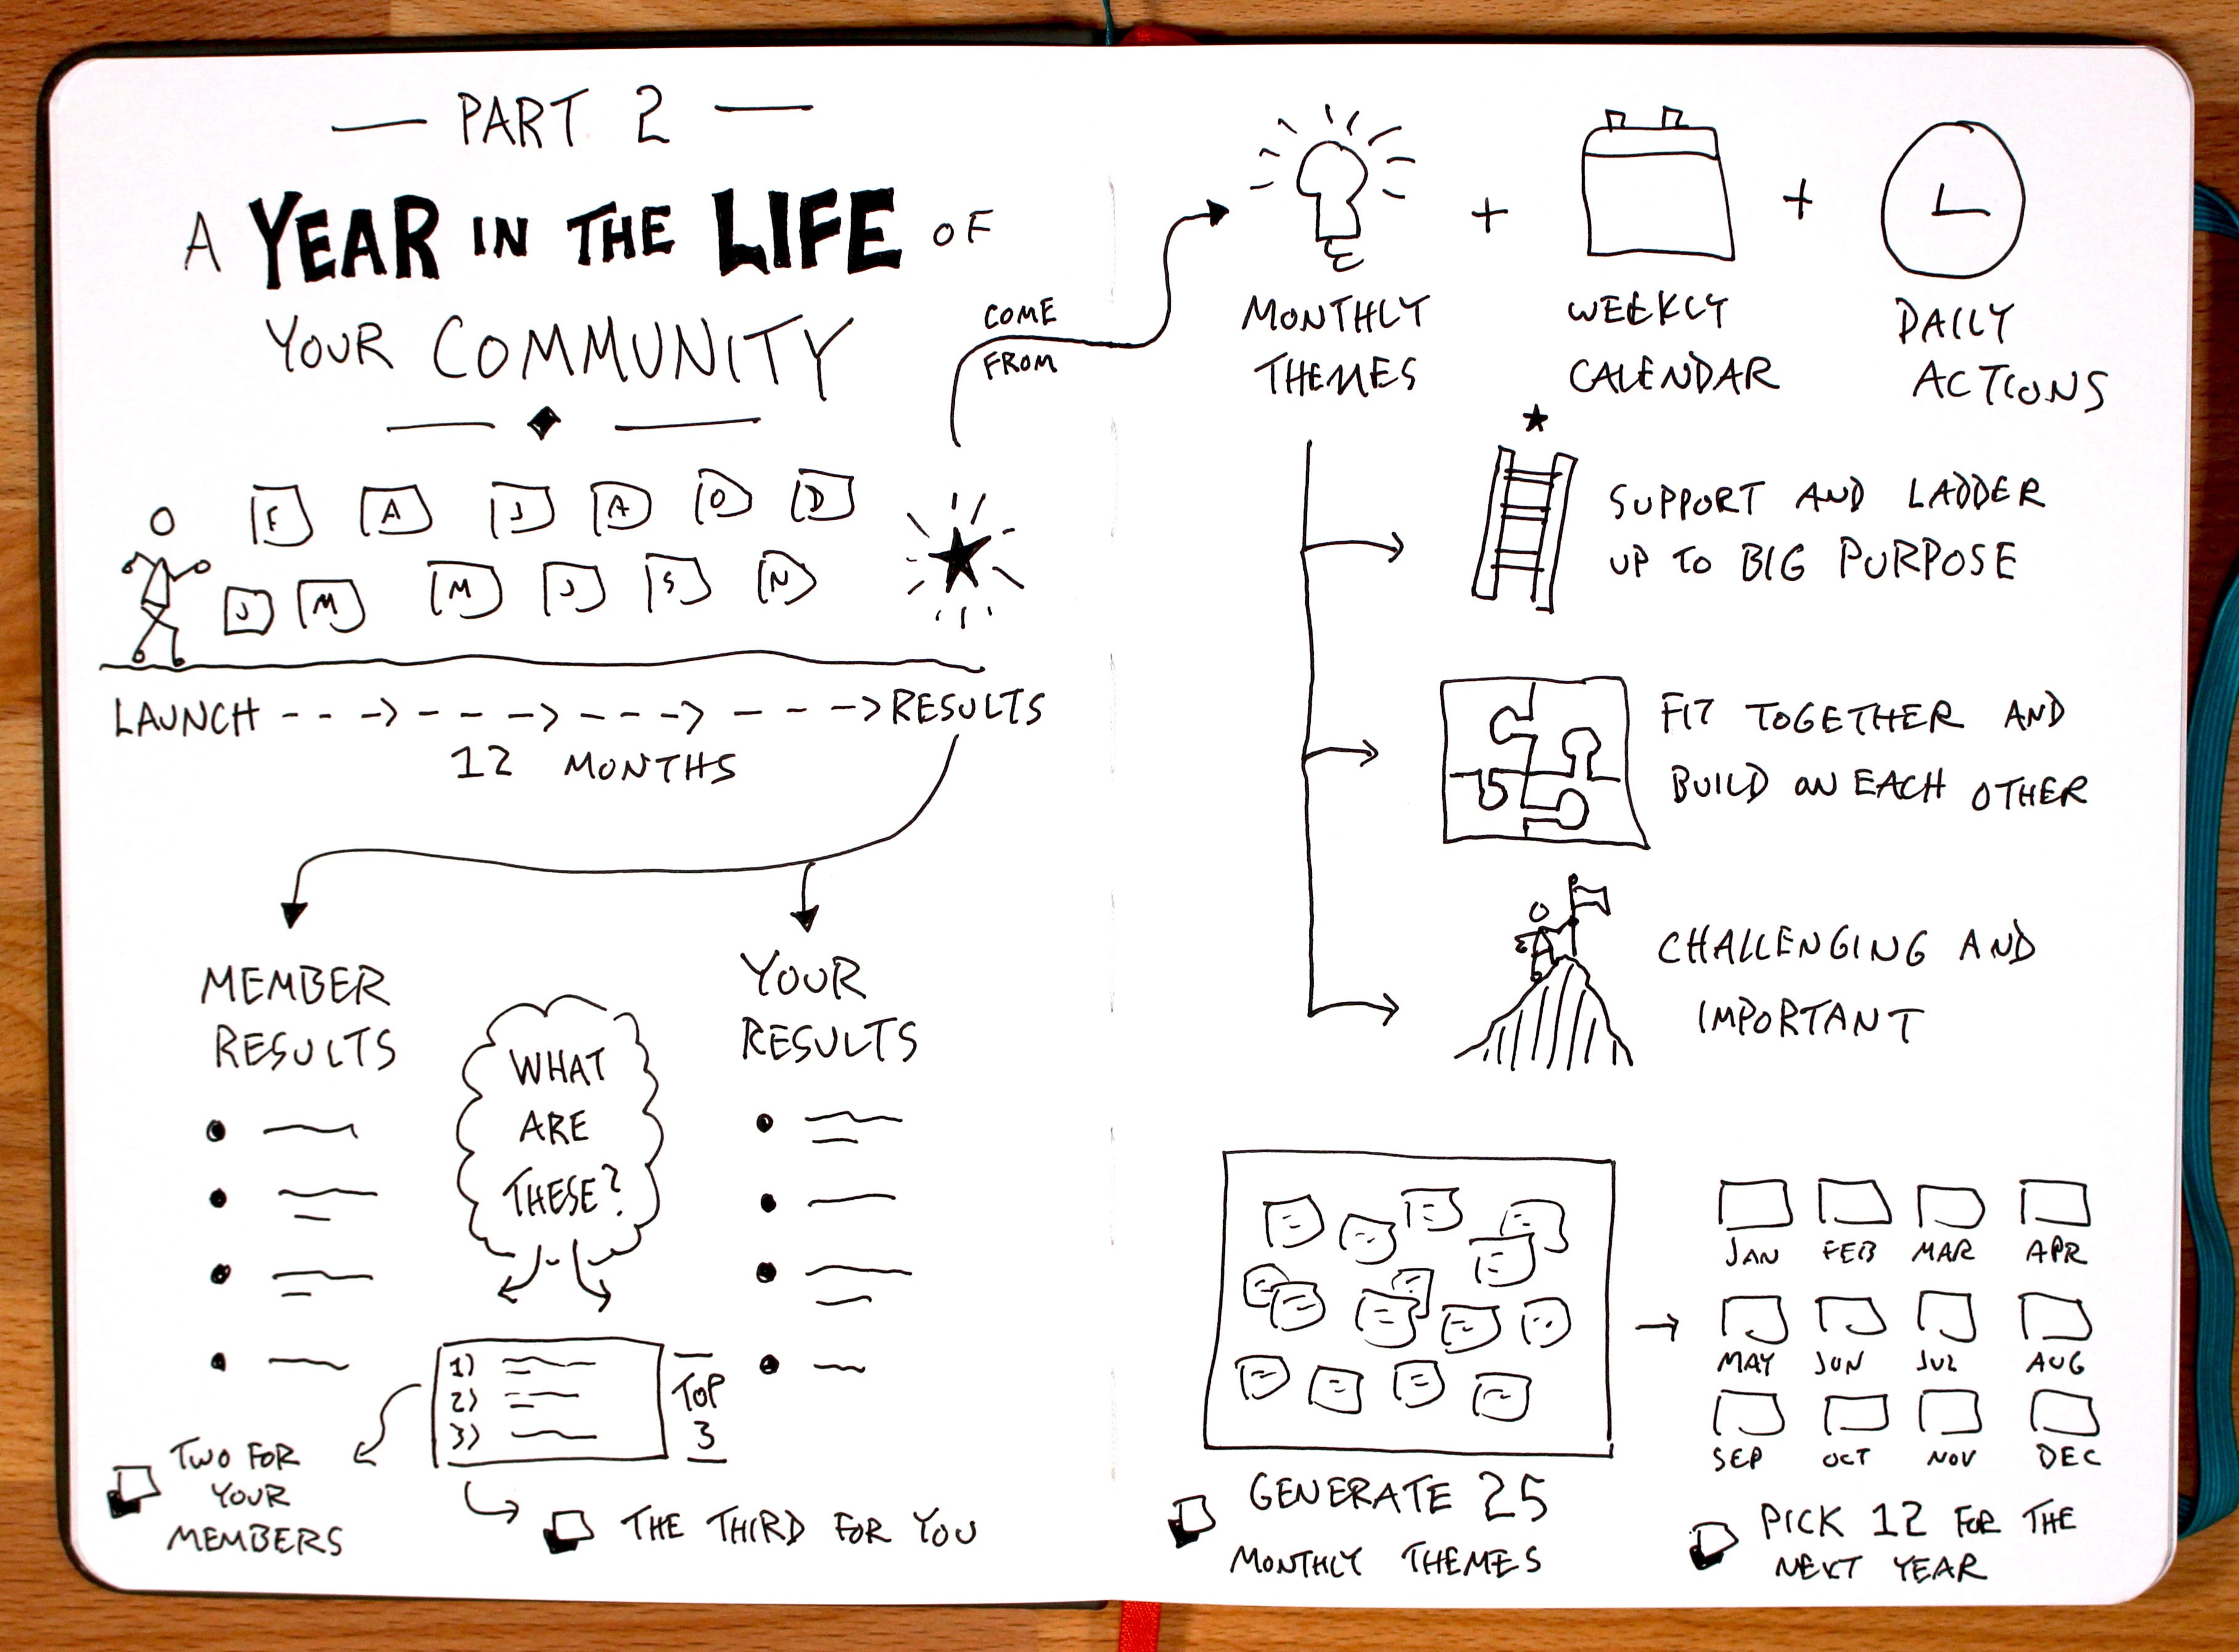 PART 2
A YEAR IN THE LIFE OF
YOUR COMMUNITY
F A J A O D
J M M J S N
LAUNCH RESULTS
12 MONTHS
COME
FROM
MEMBER
RESULTS
WHAT
ARE
THESE?
YOUR
RESULTS
1)
2)
3)
TOP
3
TWO FOR
YOUR
MEMBERS
THE THIRD FOR YOU
MONTHLY
THEMES
+
WEEKLY
CALENDAR
+
DAILY
ACTIONS
SUPPORT AND LADDER
UP TO BIG PURPOSE
FIT TOGETHER AND
BUILD ON EACH OTHER
CHALLENGING AND
IMPORTANT
GENERATE 25
MONTHLY THEMES
JAN FEB MAR APR
MAY JUN JUL AUG
SEP OCT NOV DEC
PICK 12 FOR THE
NEXT YEAR